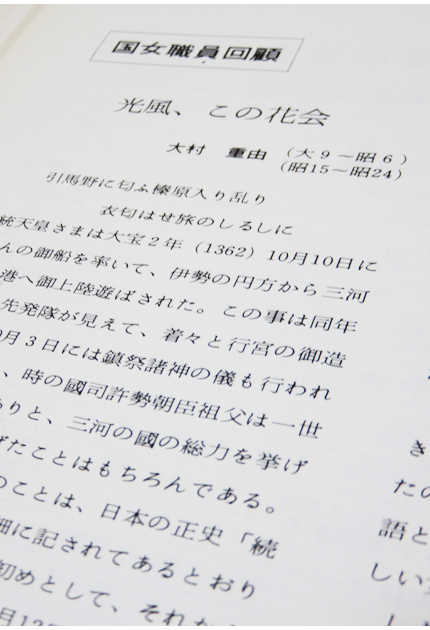 国女職員回顧
光風、この花会
大村 重由 (大9〜昭6)
(昭15〜昭24)
引馬野に匂ふ榛原入り乱り
衣匂はせ旅のしるしに
統天皇さまは大宝2年(1362)10月10日に
んの御船を率いて、伊勢の円方から三河
港へ御上陸遊ばされた。この事は同年
先発隊が見えて、着々と行宮の御造
月3日には鎮祭諸神の儀も行われ
、時の國司許勢朝臣祖父は一世
りと、三河の國の総力を挙げ
げたことはもちろんである。
のことは、日本の正史「続
細に記されてあるとおり
初めとして、それ
き
たの
語と
しい